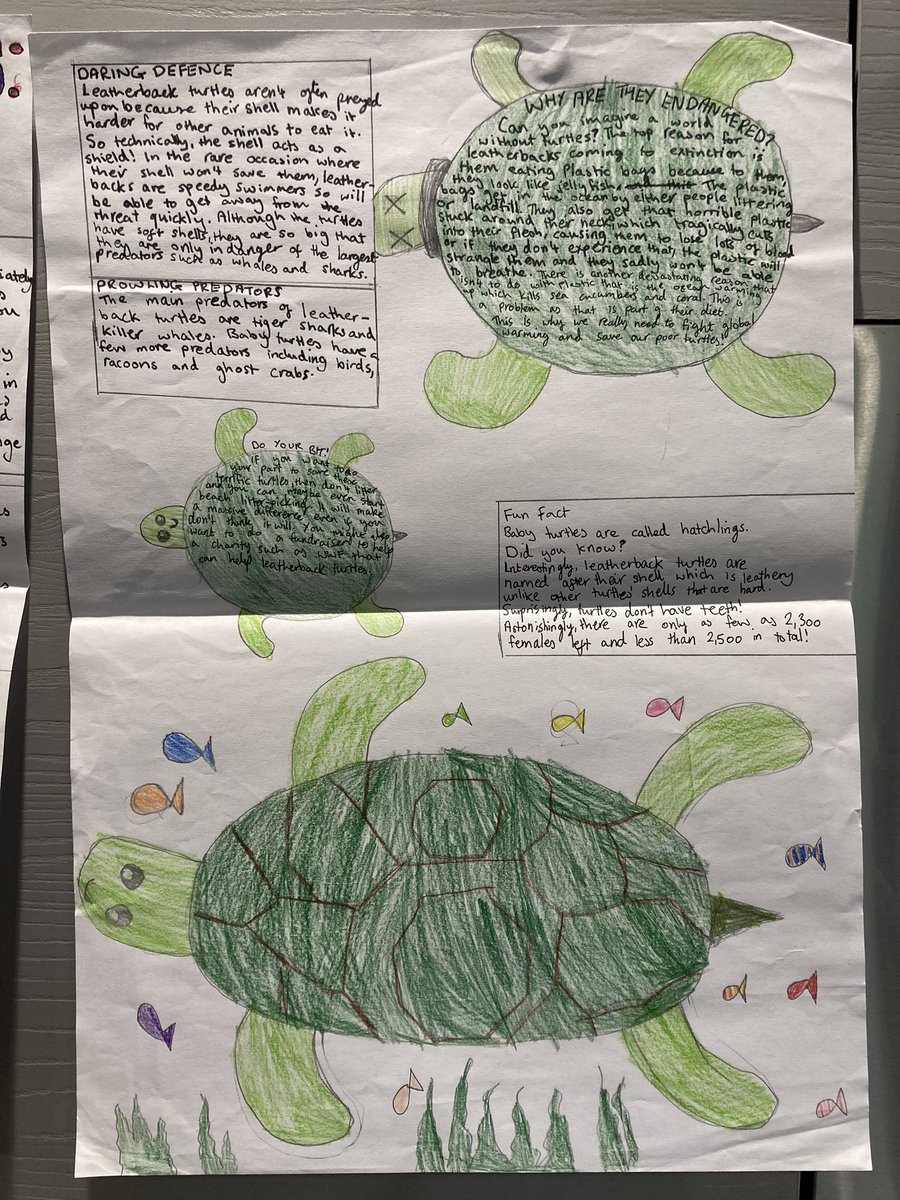 DARING DEFENCE
Leatherback turtles aren't often preyed
upon because their shell makes it
harder for other animals to eat it.
So technically, the shell acts as a
shield! In the rare occasion where
their shell won't save them, leather-
backs are speedy swimmers so will
be able to get away from the
threat quickly. Although the turtles
have soft shells, they are so big that
they are only in danger of the largest
predators such as whales and sharks.
PROWLING PREDATORS
The main predators of leather-
back turtles are tiger sharks and
killer whales. Baby turtles have a
few more predators including birds,
racoons and ghost crabs.
WHY ARE THEY ENDANGERED?
Can you imagine a world
without turtles? The top reason for
leatherbacks coming to extinction is
them eating plastic bags because to them
they look like jellyfish. The plastic
bags in the ocean by either people littering
or landfill. They also get that horrible plastic
stuck around their neck which tragically cuts
into their flesh, causing them to lose lots of blood
or if they don't experience that, the plastic will
strangle them and they sadly won't be able
to breathe. There is another devastating reason that
isn't to do with plastic that is the ocean warming
up which kills sea cucumbers and coral. This is
problem as that is part of their diet.
This is why we really need to fight global
warming and save our poor turtles!
DO YOUR BIT!
If you want to do
your part to save these
terrific turtles, then don't litter
and you can maybe even start
beach litter-picking. It will make
a massive difference even if you
don't think it will. You might also
want to do a fundraiser to help
a charity such as WWF that
can help leatherback turtles.
Fun Fact
Baby turtles are called hatchlings.
Did you know?
Interestingly, leatherback turtles are
named after their shell which is leathery
unlike other turtles' shells that are hard.
Surprisingly, turtles don't have teeth!
Astonishingly, there are only as few as 2,300
females left and less than 2,500 in total!